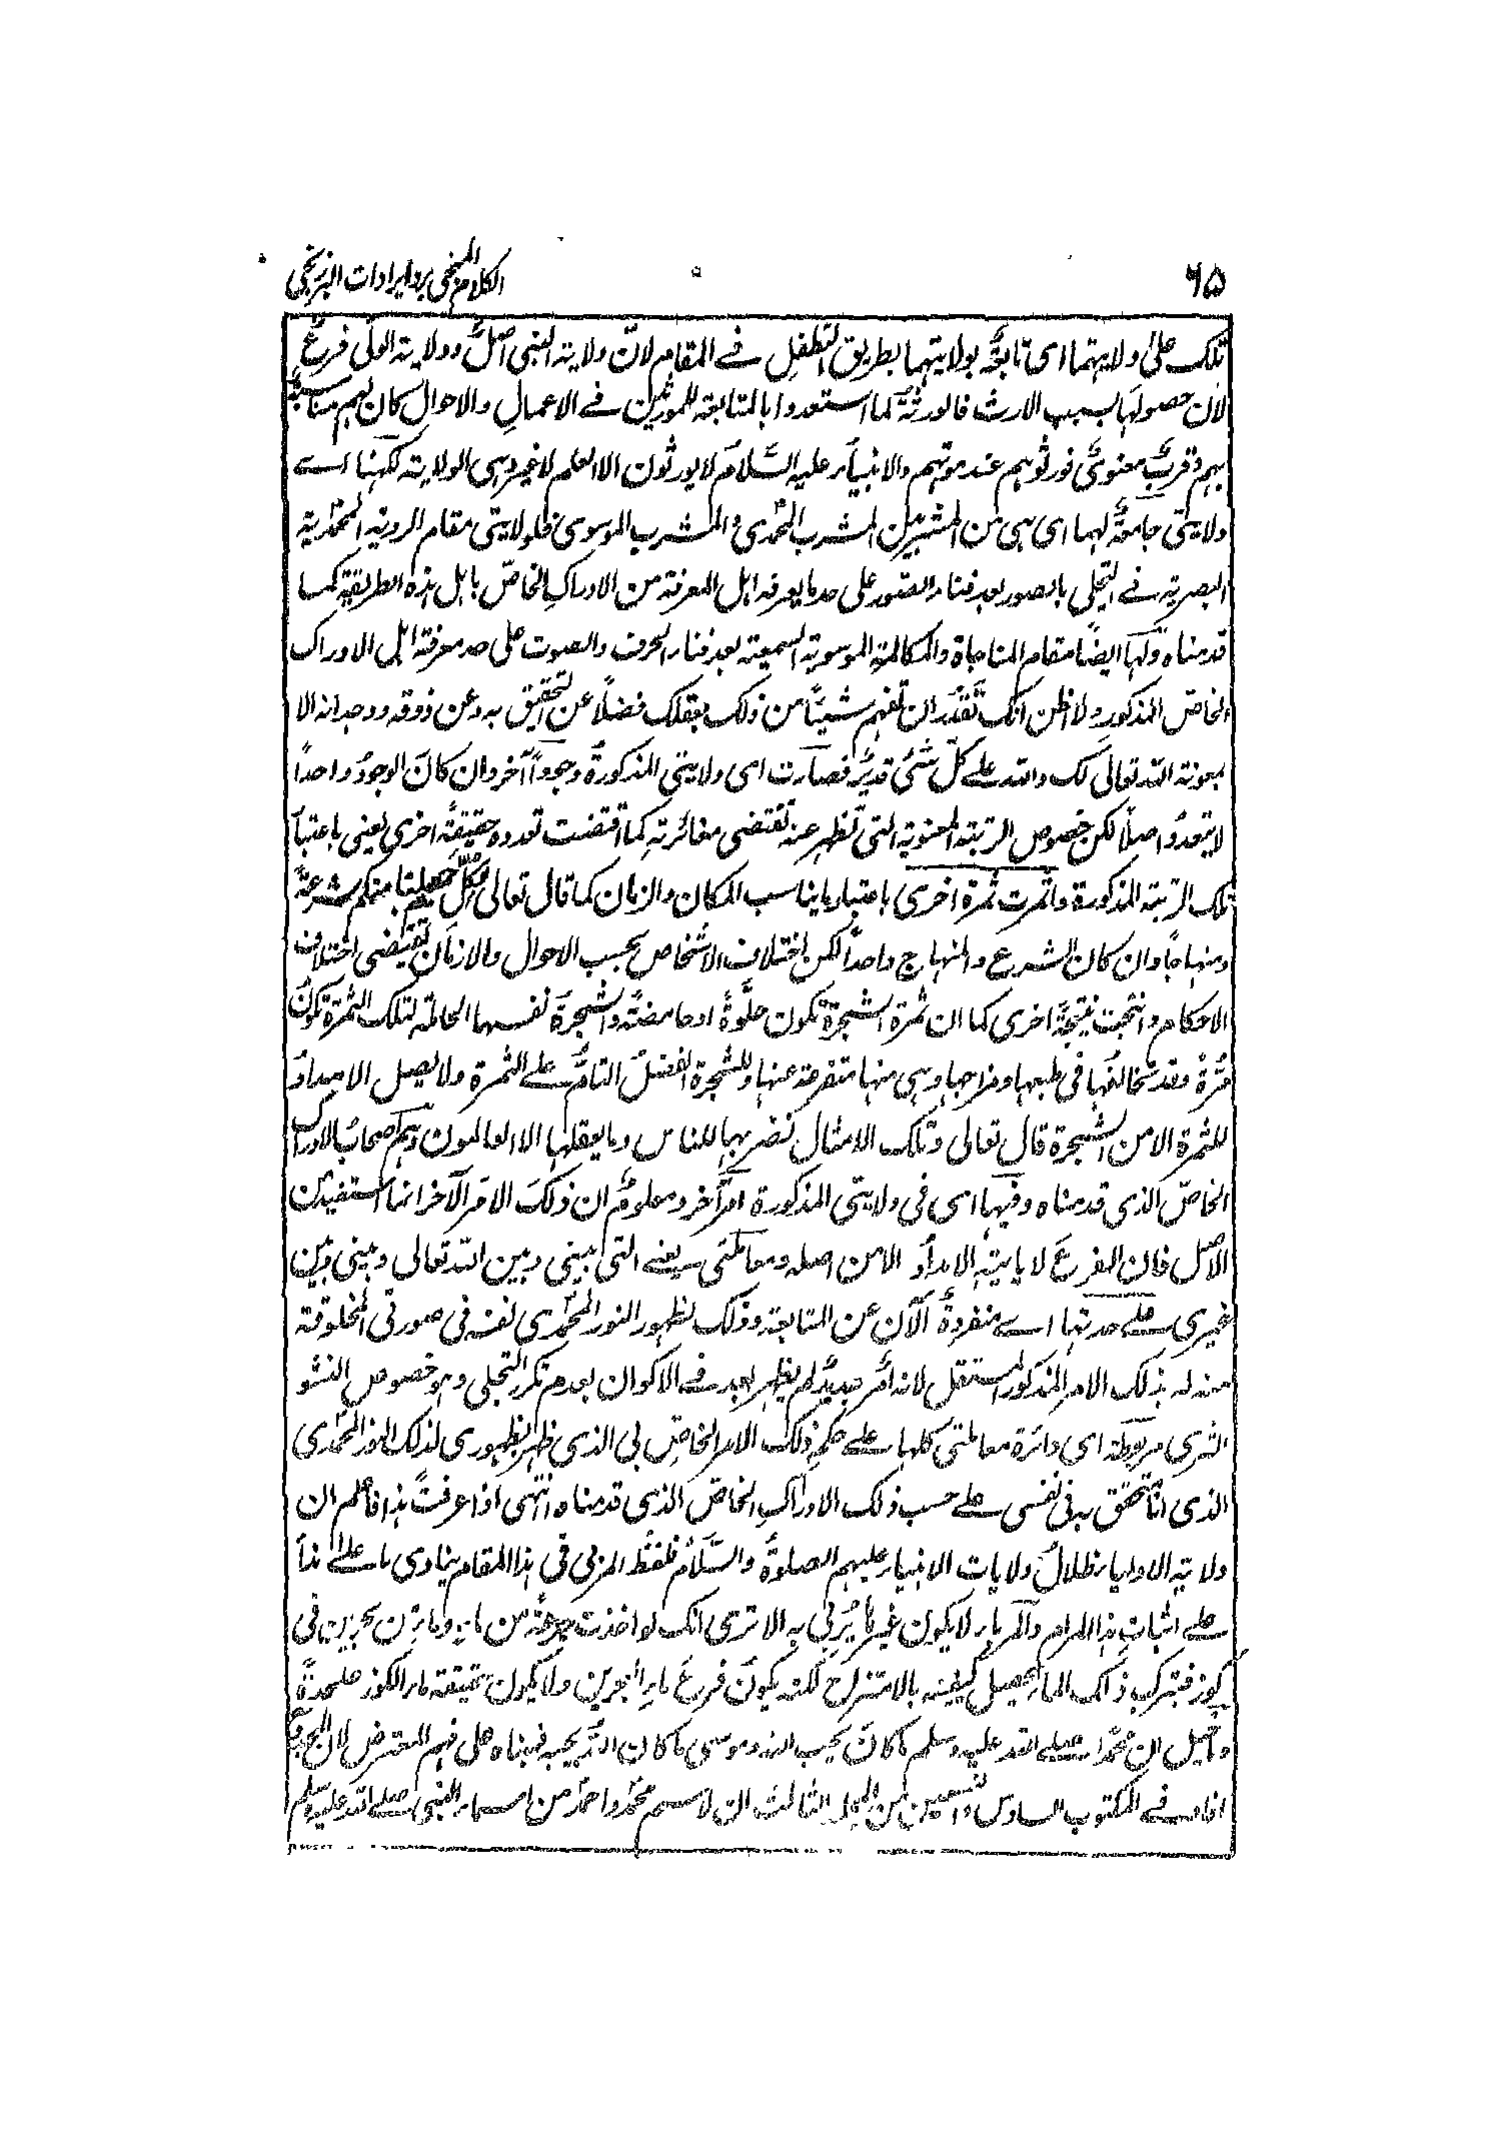 ٦٥
الكلام المنجى برد ايرادات البرزنجى
تلك على ولايتهما اى تابعةٌ بولايتهما بطريق التطفل فے المقام لانّ ولاية النبى اصلٌ وولاية الولى فرعٌ
لان حصولها بسبب الارث فالورثة كما استعدوا بالمتابعة للمورثين فے الاعمالِ والاحوال كان لهم مناسبةٌ
بهم وقربٌ معنوىٌ فورثوهم عند موتهم والانبياء عليه السَّلام لا يورثون الا العلم لا غير وهى الولاية لكنها اے
ولايتى جامعةٌ لهما اى هى من المشربين المشرب المحمّدى والمشرب الموسوى فلولايتى مقام الروية المحمّدية
البصرية فے التجلى بالصور بعد فناء الصور على حد ما يعرفه اهل المعرفة من الادراكِ الخاصّ باهل هذه الطريقة كما
قدمناه ولها ايضًا مقام المناجاة والمكالمة الموسوية السمعية بعد فناء الحرف والصوت على حد معرفة اهل الادراك
الخاصّ المذكورِ ولا اظن انك تَقْدَر ان تفهم شيئًا من ذلك بعقلك فضلًا عن التحقيق به وعن ذوقه ووجدانه الا
بمعونة اللّه تعالى لك واللّه علے كلّ شئى قديرٌ فصارت اى ولايتى المذكورةُ وجودًا آخر وان كانَ الوجودُ واحدًا
لا يتعدد اصلًا لكن خصوص الرتبة المعنوية التى تظهر عنه تقتضى مغائرته كما اقتضت تعدده حقيقةً اخرى يعنى باعتبار
تلك الرتبة المذكورة واثمرت ثمرة اخرى باعتبار ما يناسب المكان والزمان كما قال تعالى لكلٍّ جعلنا منكم شرعةً
ومنهاجًا وان كان الشرع والمنهاج واحدًا لكن اختلاف الاشخاص بحسب الاحوال والازمان تقتضى اختلاف
الاحكام وانتجت نتيجةً اخرى كما ان ثمرة الشجرة تكون حلوةً او حامضةً والشجرة نفسها الحاملة لتلك الثمرة تكون
مُرّةً وقد تخالفها فى طبعها ومزاجها وهى منها متفرعة عنها وللشجرة الفضلُ التامُّ علے الثمرة ولا يصل الامدادُ
للثمرة الا من الشجرة قال تعالى وتلك الامثال نضربها للناس وما يعقلها الا العالمون وهم اصحاب الادراك
الخاصّ الذى قدمناه وفيها اى فى ولايتى المذكورة امرٌ آخر ومعلومٌ ان ذلكَ الامر الآخر انما استفيد من
الاصل فان الفرعَ لا ياتيه الامدادُ الا من اصله ومعاملتى يعنے التى بينى وبين اللّه تعالى وبينى وبين
غيرى علے حدتها اے منفردةٌ الآن عن المتابعة وذلك لظهور النور المحمّدى نفسه فى صورتى المخلوقة
منه له بذلك الامر المذكور المستقل لانه امرٌ جديدٌ لم يظهر بعد فے الاكوان لعدم تكرر التجلى وهو خصوص النشو
البشرى مربوطة اى دائرة معاملتى كلها علے حكمِ ذلك الامر الخاصّ بى الذى ظهر بظهورى لذلك النور المحمّدى
الذى انا متحقق به فى نفسى علے حسب ذلك الادراكِ الخاصّ الذى قدمناه انتهى اذا عرفت هذا فاعلم ان
ولاية الاولياء ظلالُ ولايات الانبياء عليهم الصلوةُ والسَّلامُ فلفظُ المربى فى هذا المقام ينادى باعلے نداءٍ
علے اثباتِ هذا المرام والمربا لا يكون غير ما يُربى به الا ترى انك لو اخذت جرعةً من ماءٍ وماءٍ من بحرين فى
كوز فبتركب ذلك الماء يحصل كيفية بالامتزاج لكنه يكون فرعَ ماءِ البحرين ولا يكون حقيقة ماء الكوز عليحدةً
وما قيل ان محمّدا صلے اللّه عليه وسلم ما كانَ يحب اللّه وموسى ما كان اللّه يحبه فبناه على فهم المعترض لان المجدد
افاد فے المكتوب السادس والتسعين من الجلد الثالث ان لاسم محمّد واحمد من اسماء النبى صلے اللّه عليه وسلم